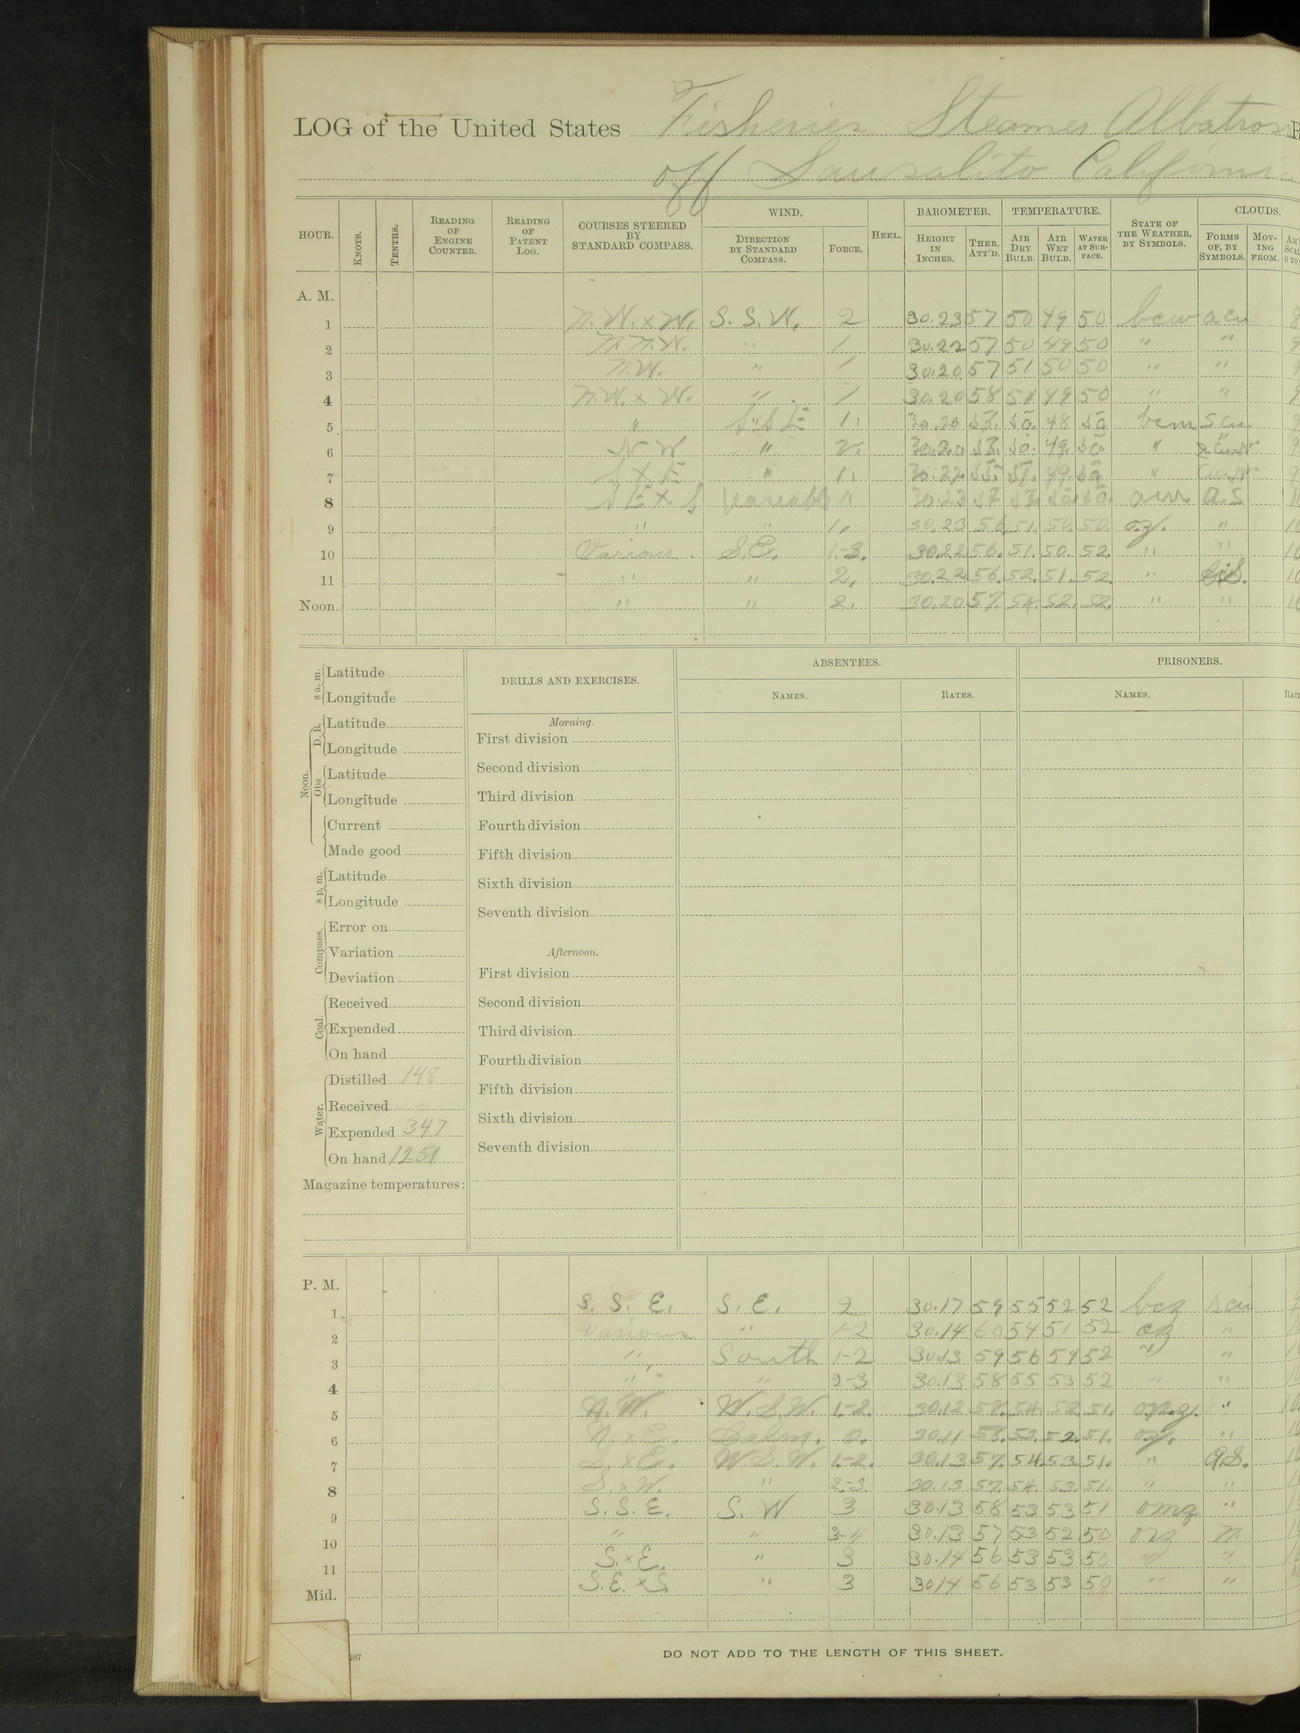 LOG of the United States Fisheries Steamer Albatross R
off Sausalito California
HOUR. KNOTS. TENTHS. READING OF ENGINE COUNTER. READING OF PATENT LOG. COURSES STEERED BY STANDARD COMPASS. WIND. DIRECTION BY STANDARD COMPASS. FORCE. HEEL. BAROMETER. HEIGHT IN INCHES. THER. ATT'D. TEMPERATURE. AIR DRY BULB. AIR WET BULB. WATER AT SURFACE. STATE OF THE WEATHER, BY SYMBOLS. CLOUDS. FORMS OF, BY SYMBOLS. MOVING FROM.
A. M.
1 N.W. x W. S. S. W. 2 30.23 57 50 49 50 bcw acu
2 N.N.W. " 1 30.22 57 50 49 50 " "
3 N.W. " 1 30.20 57 51 50 50 " "
4 N.W. x W. " 1 30.20 58 51 49 50 " "
5 " S.S.E 1. 30.20 50. 48 50 bcm s cu
6 N W " 2. 30.20 50. 49. 50. "
7 S x E " 1. 30.22 49. "
8 S E x S Variable 1 30.23 a.s 10
9 " " 1. 30.23 56. 51. 50. 50. o.z. " 10
10 Various. S.E. 1-3. 30.22 56. 51. 50. 52. " " 10
11 " " 2. 30.22 56. 52. 51. 52 " 10
Noon. " " 2. 30.20 57. 54. 52. 52. " " 10
8 a. m. Latitude
Longitude
Noon. D. R. Latitude
Longitude
Obs Latitude
Longitude
Current
Made good
8 p. m. Latitude
Longitude
Compass. Error on
Variation
Deviation
Coal. Received
Expended
On hand
Water. Distilled 148
Received
Expended 347
On hand 1251
Magazine temperatures:
DRILLS AND EXERCISES.
Morning.
First division
Second division
Third division
Fourth division
Fifth division
Sixth division
Seventh division
Afternoon.
First division
Second division
Third division
Fourth division
Fifth division
Sixth division
Seventh division
ABSENTEES.
NAMES. RATES.
PRISONERS.
NAMES.
P. M.
1 S. S. E. S. E. 2 30.17 59 55 52 52 bcz scu
2 Various " 1-2 30.14 60 54 51 52 oz "
3 " South 1-2 30.13 59 56 54 52 " "
4 " " 2-3 30.13 58 55 53 52 " "
5 N.W. W.S.W. 1-2. 30.12 58. 54. 52. 51. "
6 N. x E. Calm. 0. 30.11 58. 53. 52. 51. oz. "
7 S. x E. W.S.W. 1-2. 30.13 57. 54. 53. 51. " A.S.
8 S. x W. " 2-3. 30.13 57. 54. 53. 51. " "
9 S. S. E. S. W 3 30.13 58 53 53 51 omz "
10 " " 3-4 30.13 57 53 52 50 n.
11 S. x E. " 3 30.14 56 53 53 50 " "
Mid. S.E. x S " 3 30.14 56 53 53 50 " "
287
DO NOT ADD TO THE LENGTH OF THIS SHEET.